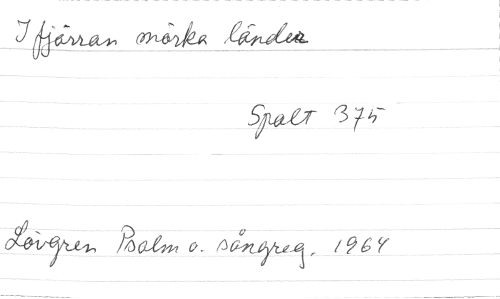 I fjärran mörka länder
Spalt 375
Lövgren Psalm o. sångreg. 1964